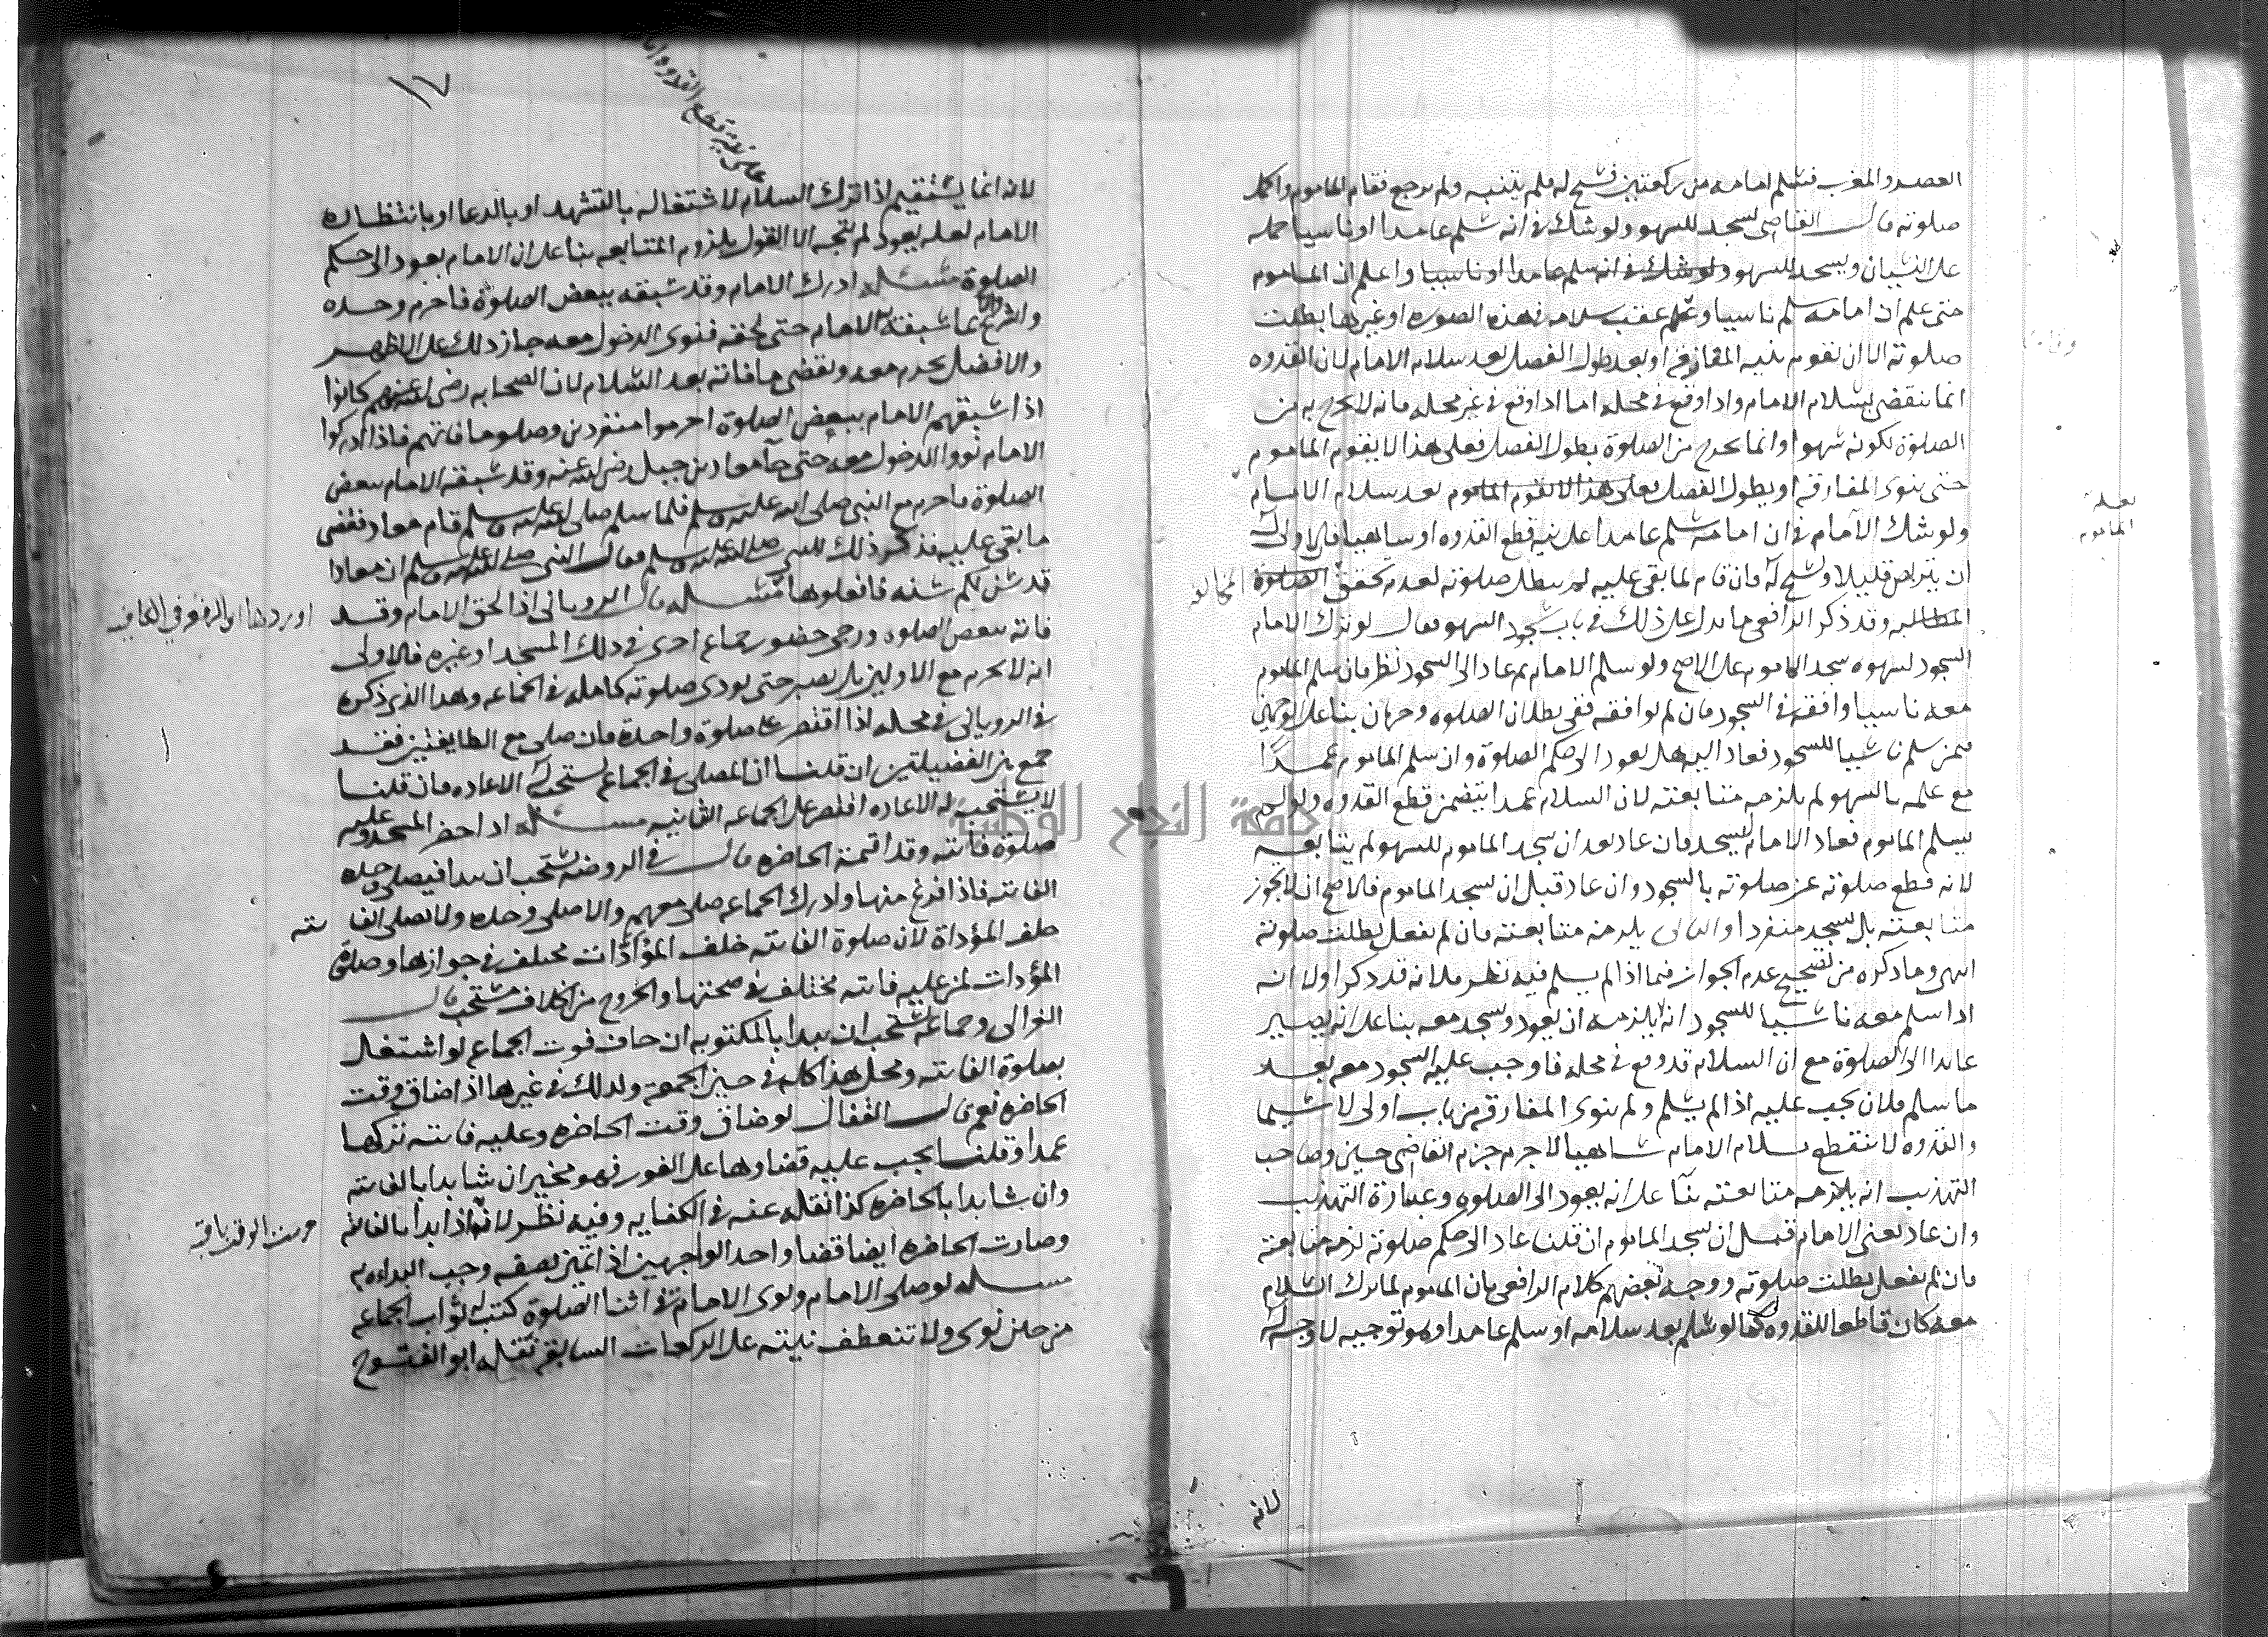 العصر والمغرب فسلم امامه من ركعتين فسبح له فلم يتنبه ولم يرجع فقام الماموم واكمل
صلوته قال القاضي يسجد للسهو ولو شك في انه سلم عامدا او ناسيا حمله
على النسيان ويسجد للسهو ولو شك في انه سلم عامدا او ناسيا واعلم ان الماموم
متى علم ان امامه سلم ناسيا وسلم عقب سلامه في هذه الصوره او غيرها بطلت
صلوته الا ان يقوم بنيه المفارقه او بعد طول الفصل بعد سلام الامام لان القدوه
انما تنقضي بسلام الامام واذا وقع في محله اما اذا وقع في غير محله فانه لا يخرج به من
الصلوة لكونه سهوا وانما يخرج من الصلوة بطول الفصل فعلى هذا لا يقوم الماموم
حتى ينوى المفارقه او يطول الفصل فعلى هذا لا يقوم الماموم بعد سلام الامام
ولو شك الامام في ان امامه سلم عامدا على نيه قطع القدوه او ساهيا فالاولى له
ان يتربص قليلا ويسبح له فان قام لما بقي عليه لم تبطل صلوته لعدم تحقق الصلوة
المطالبه وقد ذكر الرافعي ما يدل على ذلك في باب سجود السهو فقال لو ترك الامام
السجود لسهوه سجد الماموم على الاصح ولو سلم الامام ثم عاد الى السجود نظر فان سلم الماموم
معه ناسيا وافقه في السجود فان لم يوافقه ففي بطلان الصلوه وجهان بناء على الوجهين
فيمن سلم ناسيا للسجود فعاد اليه هل يعود الى حكم الصلوة وان سلم الماموم عمدا
مع علمه بالسهو لم يلزمه متابعته لان السلام عمدا يتضمن قطع القدوه ولو لم
يسلم الماموم فعاد الامام ليسجد فان عاد بعد ان سجد الماموم للسهو لم يتابعه
لانه قطع صلوته عن صلوته بالسجود وان عاد قبل ان يسجد الماموم فالاصح انه لا يجوز
متابعته بل يسجد منفردا والثاني يلزمه متابعته فان لم يفعل بطلت صلوته
انتهى وما ذكره من تصحيح عدم الجواز فيما اذا لم يسلم فيه نظر فلانه قد ذكر اولا انه
اذا سلم معه ناسيا للسجود انه يلزمه ان يعود ويسجد معه بناء على انه يصير
عائدا الى الصلوة مع ان السلام قد وقع في محله فاوجب عليه السجود معه بعد
ما سلم فلان يجب عليه اذا لم يسلم ولم ينوى المفارقه من باب اولى لا سيما
والقدوه لا تنقطع بسلام الامام ساهيا لا جرم جزم القاضي حسين وصاحب
التهذيب انه يلزمه متابعته بناء على انه يعود الى الصلوه وعبارة التهذيب
وان عاد يعنى الامام قبل ان يسجد الماموم ان قلنا عاد الى حكم صلوته لزمه متابعته
فان لم يفعل بطلت صلوته ووجه بعضهم كلام الرافعي بان الماموم لما ترك السلام
معه كان قاطعا للقدوه كما لو سلم بعد سلامه او سلم عامدا وهو توجيه لا وجه له
لانه
تعليله
الماموم
١٧
على نية قطع القدوه
لانه انما يستقيم اذا ترك السلام لاشتغاله بالتشهد او بالدعا او بانتظار
الامام لعله يعود لم يتجه الا القول بلزوم المتابعه بناء على ان الامام يعود الى حكم
الصلوة مسئله ادرك الامام وقد سبقه ببعض الصلوة فاحرم وحده
والمراعى ما سبقه به الامام حتى لحقه فنوى الدخول معه جاز ذلك على الاظهر
والافضل يحرم معه ويقضي ما فاته بعد السلام لان الصحابه رضي الله عنهم كانوا
اذا سبقهم الامام ببعض الصلوة احرموا منفردين وصلوا ما فاتهم فاذا ادركوا
الامام نووا الدخول معه حتى جآ معاد بن جبل رضي الله عنه وقد سبقه الامام ببعض
الصلوة فاحرم مع النبي صلى الله عليه وسلم فلما سلم صلى الله عليه وسلم قام معاد فقضى
ما بقي عليه فذكر ذلك للنبي صلى الله عليه وسلم فقال النبي صلى الله عليه وسلم ان معادا
قد سن لكم سنه فافعلوها مسئله قال الروياني اذا لحق الامام وقد
فاته بعض الصلوه ورجى حضور جماعه اخرى في ذلك المسجد او غيره فالاولى
انه لا يحرم مع الاولين بل يصبر حتى يودى صلوته كامله في الجماعه وهذا الذي ذكره
في الروياني في محله اذا اقتصر على صلوة واحدة فان صلى مع الطايفتين فقد
جمع بين الفضيلتين ان قلنا ان المصلى في الجماعه يستحب له الاعاده فان قلنا
لا يستحب له الاعاده اقتصر على الجماعه الثانيه مسئله اذا حضر المسجد وعليه
صلوة فائته وقد اقيمة الحاضره قال في الروضه يستحب ان يبدا فيصلى وحده
الفائته فاذا فرغ منها وادرك الجماعه صلى معهم والا صلى وحده ولا يصلى الفائته
خلف المؤداة لان صلوة الفائته خلف المؤدات مختلف في جوازها وصلوة
المؤدات لمن عليه فائته مختلف في صحتها والخروج من الخلاف مستحب قال
الغزالى وجماعه يستحب ان يبدا بالمكتوبه ان خاف فوت الجماعه لو اشتغل
بصلوة الفائته ومحل هذا كله في حيز الجمعه وكذلك في غيرها اذا ضاق وقت
الحاضره نعم قال القفال لو ضاق وقت الحاضره وعليه فائته تركها
عمدا وقلنا يجب عليه قضاوها على الفور فهو مخير ان شا بدا بالفائته
وان شا بدا بالحاضره كذا نقله عنه في الكفايه وفيه نظر لانه اذا بدا بالفائته
وصارت الحاضره ايضا قضا واحد الواجبين اذا تميز بصفه وجب البداءه به
مسئله لو صلى الامام ونوى الامامة في اثنا الصلوة كتب له ثواب الجماعه
من حين نوى ولا تنعطف نيته على الركعات السابقه نقله ابو الفتوح
اوردها ابن الرفعه في الكفايه
جامعة النجاح الوطنية